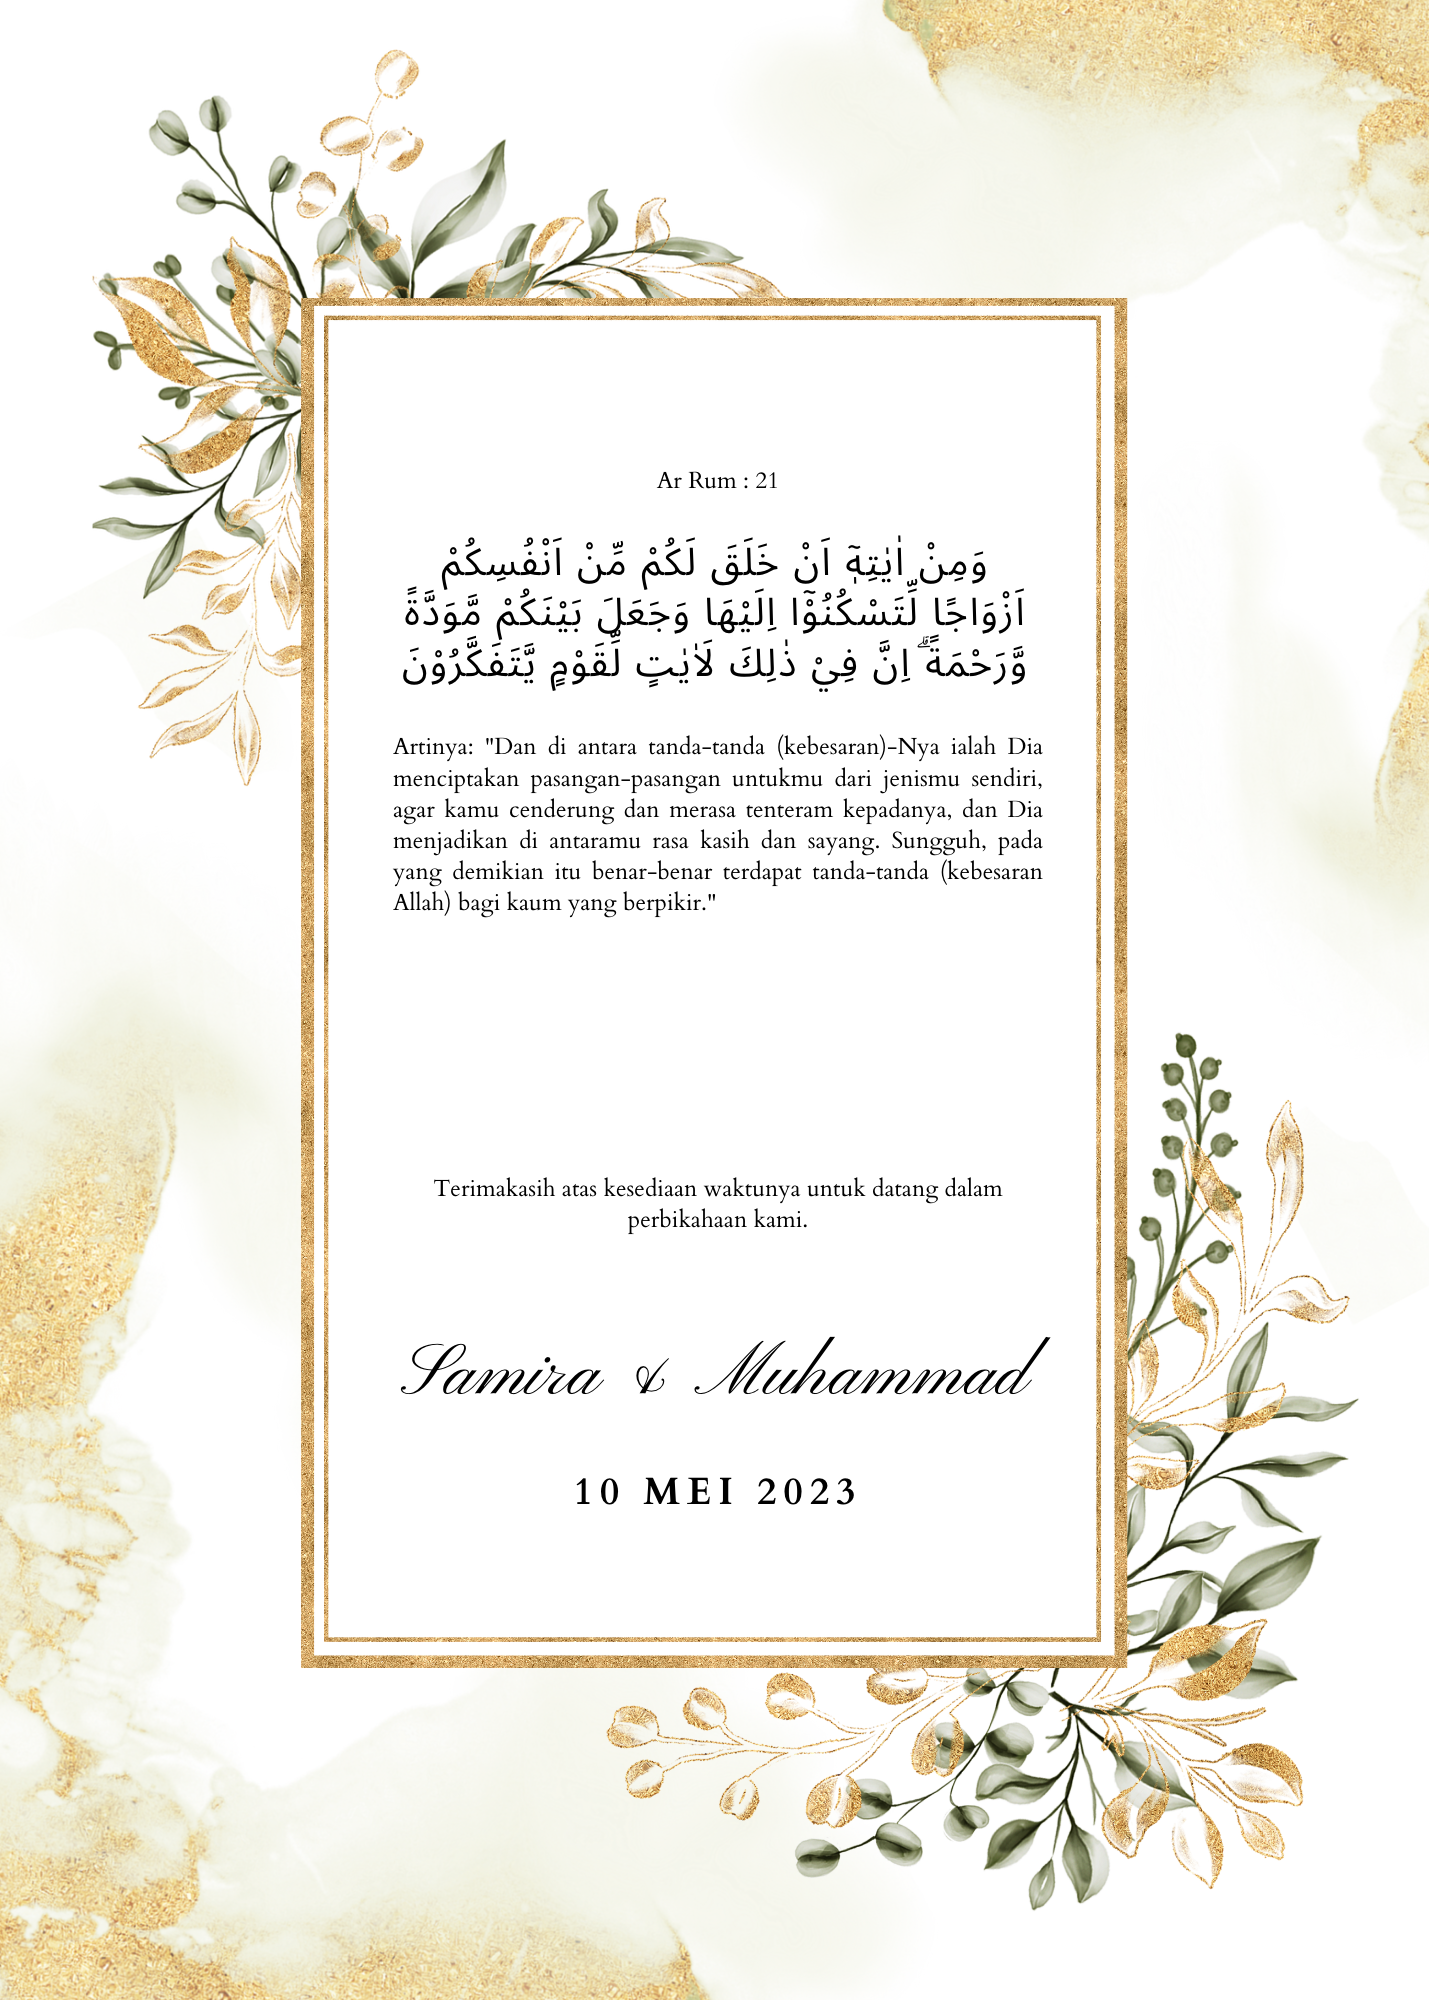 Ar Rum : 21
وَمِنْ اٰيٰتِهٖٓ اَنْ خَلَقَ لَكُمْ مِّنْ اَنْفُسِكُمْ
اَزْوَاجًا لِّتَسْكُنُوْٓا اِلَيْهَا وَجَعَلَ بَيْنَكُمْ مَّوَدَّةً
وَّرَحْمَةً ۗاِنَّ فِيْ ذٰلِكَ لَاٰيٰتٍ لِّقَوْمٍ يَّتَفَكَّرُوْنَ
Artinya: "Dan di antara tanda-tanda (kebesaran)-Nya ialah Dia
menciptakan pasangan-pasangan untukmu dari jenismu sendiri,
agar kamu cenderung dan merasa tenteram kepadanya, dan Dia
menjadikan di antaramu rasa kasih dan sayang. Sungguh, pada
yang demikian itu benar-benar terdapat tanda-tanda (kebesaran
Allah) bagi kaum yang berpikir."
Terimakasih atas kesediaan waktunya untuk datang dalam
perbikahaan kami.
Samira & Muhammad
10 MEI 2023